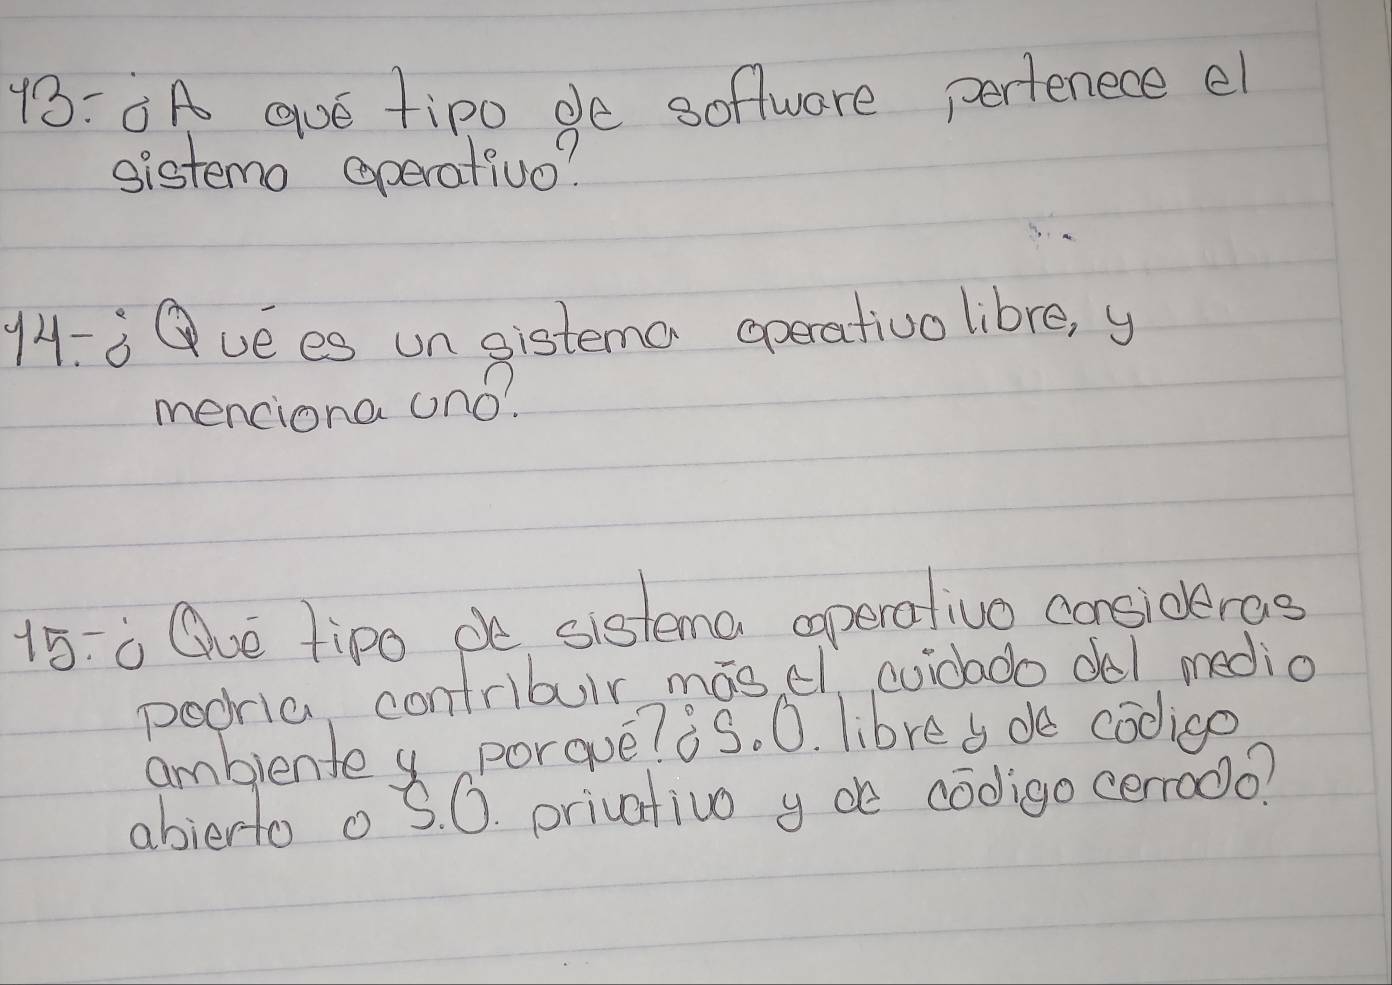 13.- ¿A qué tipo de software pertenece el
sistema operativo?
14.- ¿Qué es un sistema operativo libre, y
menciona uno?
15.- ¿Qué tipo de sistema operativo consideras
podria contribuir más el cuidado del medio
ambiente y porqué? ¿S.O. libre y de código
abierto o S.O. privativo y de código cerrado?